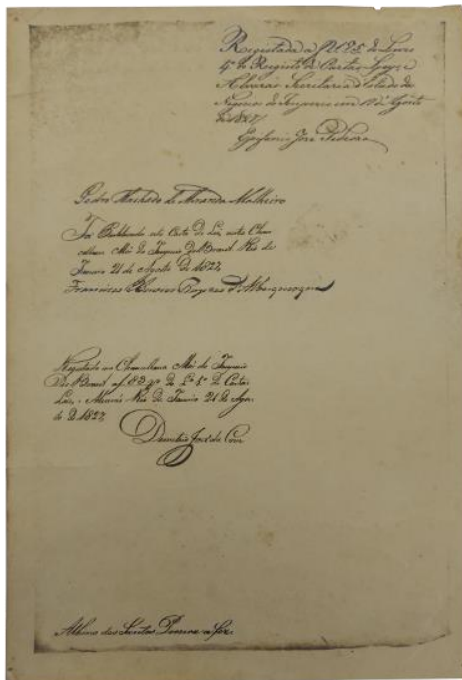 Registada a f 205 do Livro
4º do Registo de Cartas Leys e
Alvarás. Secretaria d'Estado dos
Negocios do Imperio em 17 d'Agosto
de 1827
Epifanio José Pedrozo
Pedro Machado de Miranda Malheiro
Foi Publicada esta Carta de Lei nesta Chan
cellaria Mór do Imperio do Brazil. Rio de
Janeiro 21 de Agosto de 1827
Francisco Xavier Rapozo d'Albuquerque
Registada na Chancellaria Mór do Imperio
Do Brazil a f 82 do Lº 1º de Cartas
Leis, e Alvarás. Rio de Janeiro 21 de Agos
to de 1827
Demetrio José da Cruz
Albino dos Santos Pereira a fez